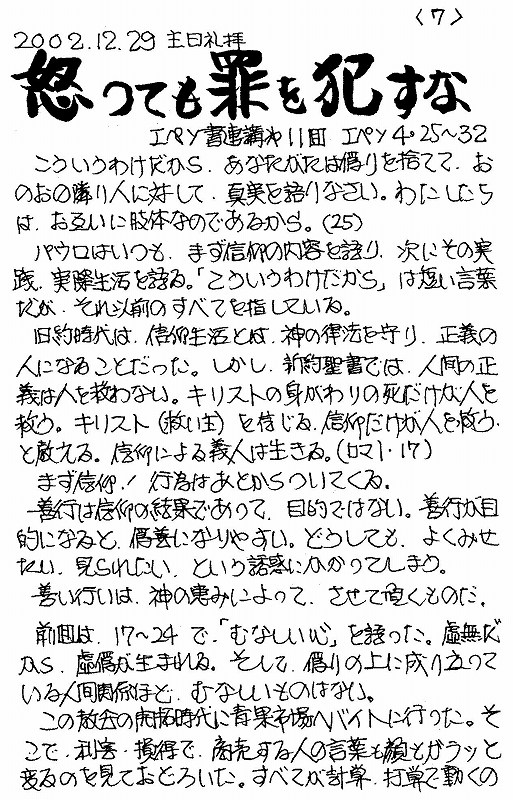 〈7〉
2002.12.29 主日礼拝
怒っても罪を犯すな
エペソ書連講第11回 エペソ4・25〜32
こういうわけだから、あなたがたは偽りを捨てて、お
のおの隣り人に対して、真実を語りなさい。わたしたち
は、お互いに肢体なのであるから。(25)
パウロはいつも、まず信仰の内容を語り、次にその実
践、実際生活を語る。「こういうわけだから」は短い言葉
だが、それ以前のすべてを指している。
旧約時代は、信仰生活とは、神の律法を守り、正義の
人になることだった。しかし、新約聖書では、人間の正
義は人を救わない。キリストの身がわりの死だけが人を
救う。キリスト(救い主)を信じる、信仰だけが人を救う、
と教える。信仰による義人は生きる。(ロマ1・17)
まず信仰!行為はあとからついてくる。
善行は信仰の結果であって、目的ではない。善行が目
的になると、偽善になりやすい。どうしても、よくみせ
たい、見られたい、という誘惑にかかってしまう。
善い行いは、神の恵みによって、させて頂くものだ。
前回は、17〜24で、「むなしい心」を語った。虚無だ
から、虚偽が生まれる。そして、偽りの上に成り立って
いる人間関係ほど、むなしいものはない。
この教会の開拓時代に青果市場へバイトに行った。そ
こで、利害・損得で、商売する人の言葉も顔もガラッと
変るのを見ておどろいた。すべてが計算、打算で動くの